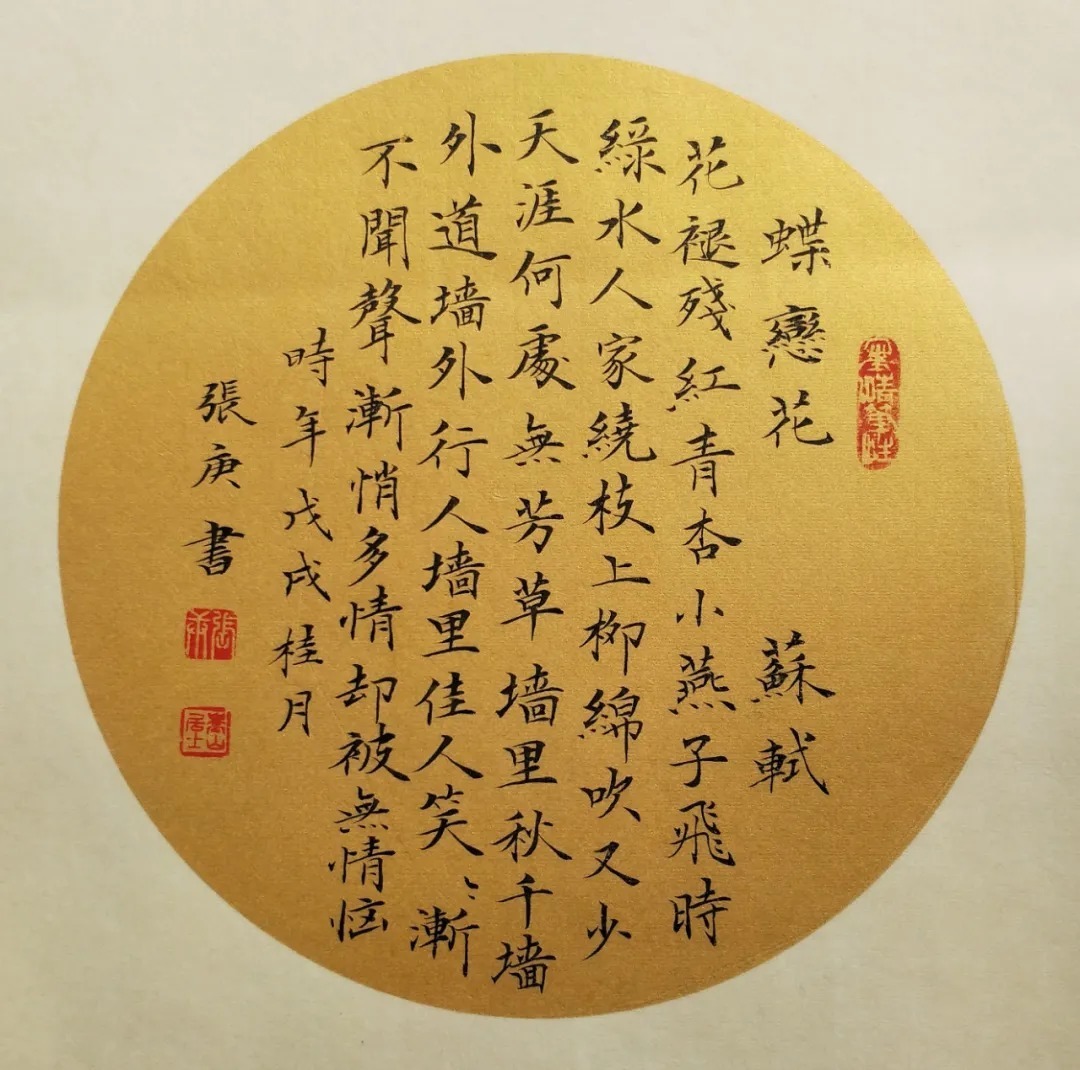 蝶戀花 蘇軾
花褪殘紅青杏小燕子飛時
綠水人家繞枝上柳綿吹又少
天涯何處無芳草墙里秋千墙
外道墙外行人墙里佳人笑〻漸
不聞聲漸悄多情却被無情恼
時年戊戌桂月
張庚書